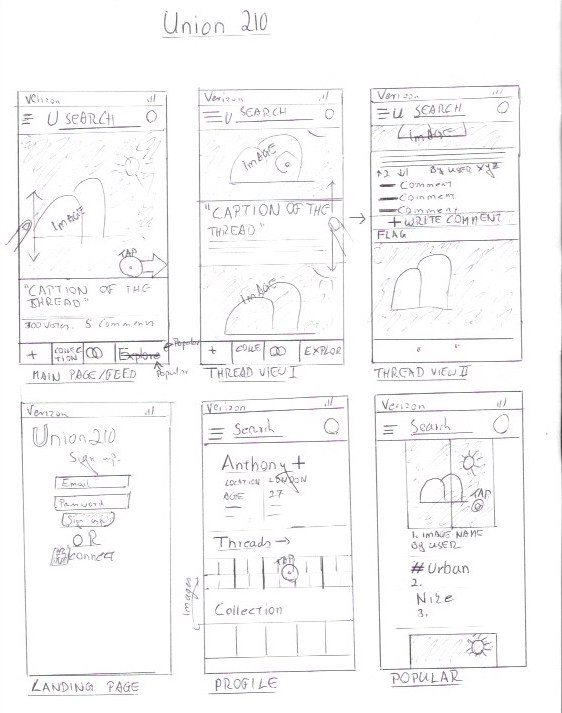 Union 210
Verizon
U SEARCH
IMAGE
TAP
"CAPTION OF THE
THREAD"
300 Votes. 5 Comments
+ COLLECTION Explore
Popular
Popular
MAIN PAGE/FEED
Verizon
U SEARCH
IMAGE
"CAPTION OF THE
THREAD"
IMAGE
+ COLLE EXPLOR
THREAD VIEW I
Verizon
U SEARCH
IMAGE
By USER XYZ
Comment
Commen
Comment
+ WRITE COMMENT
FLAG
THREAD VIEW II
Verizon
Union210
Sign up
Email
Password
Sign up
OR
connect
LANDING PAGE
Verizon
Search
Anthony +
LOCATION LONDON
AGE 27
Threads →
TAP
Images
Collection
PROFILE
Verizon
Search
TAP
1. IMAGE NAME
By USER
#Urban
2.
Nize
3.
POPULAR